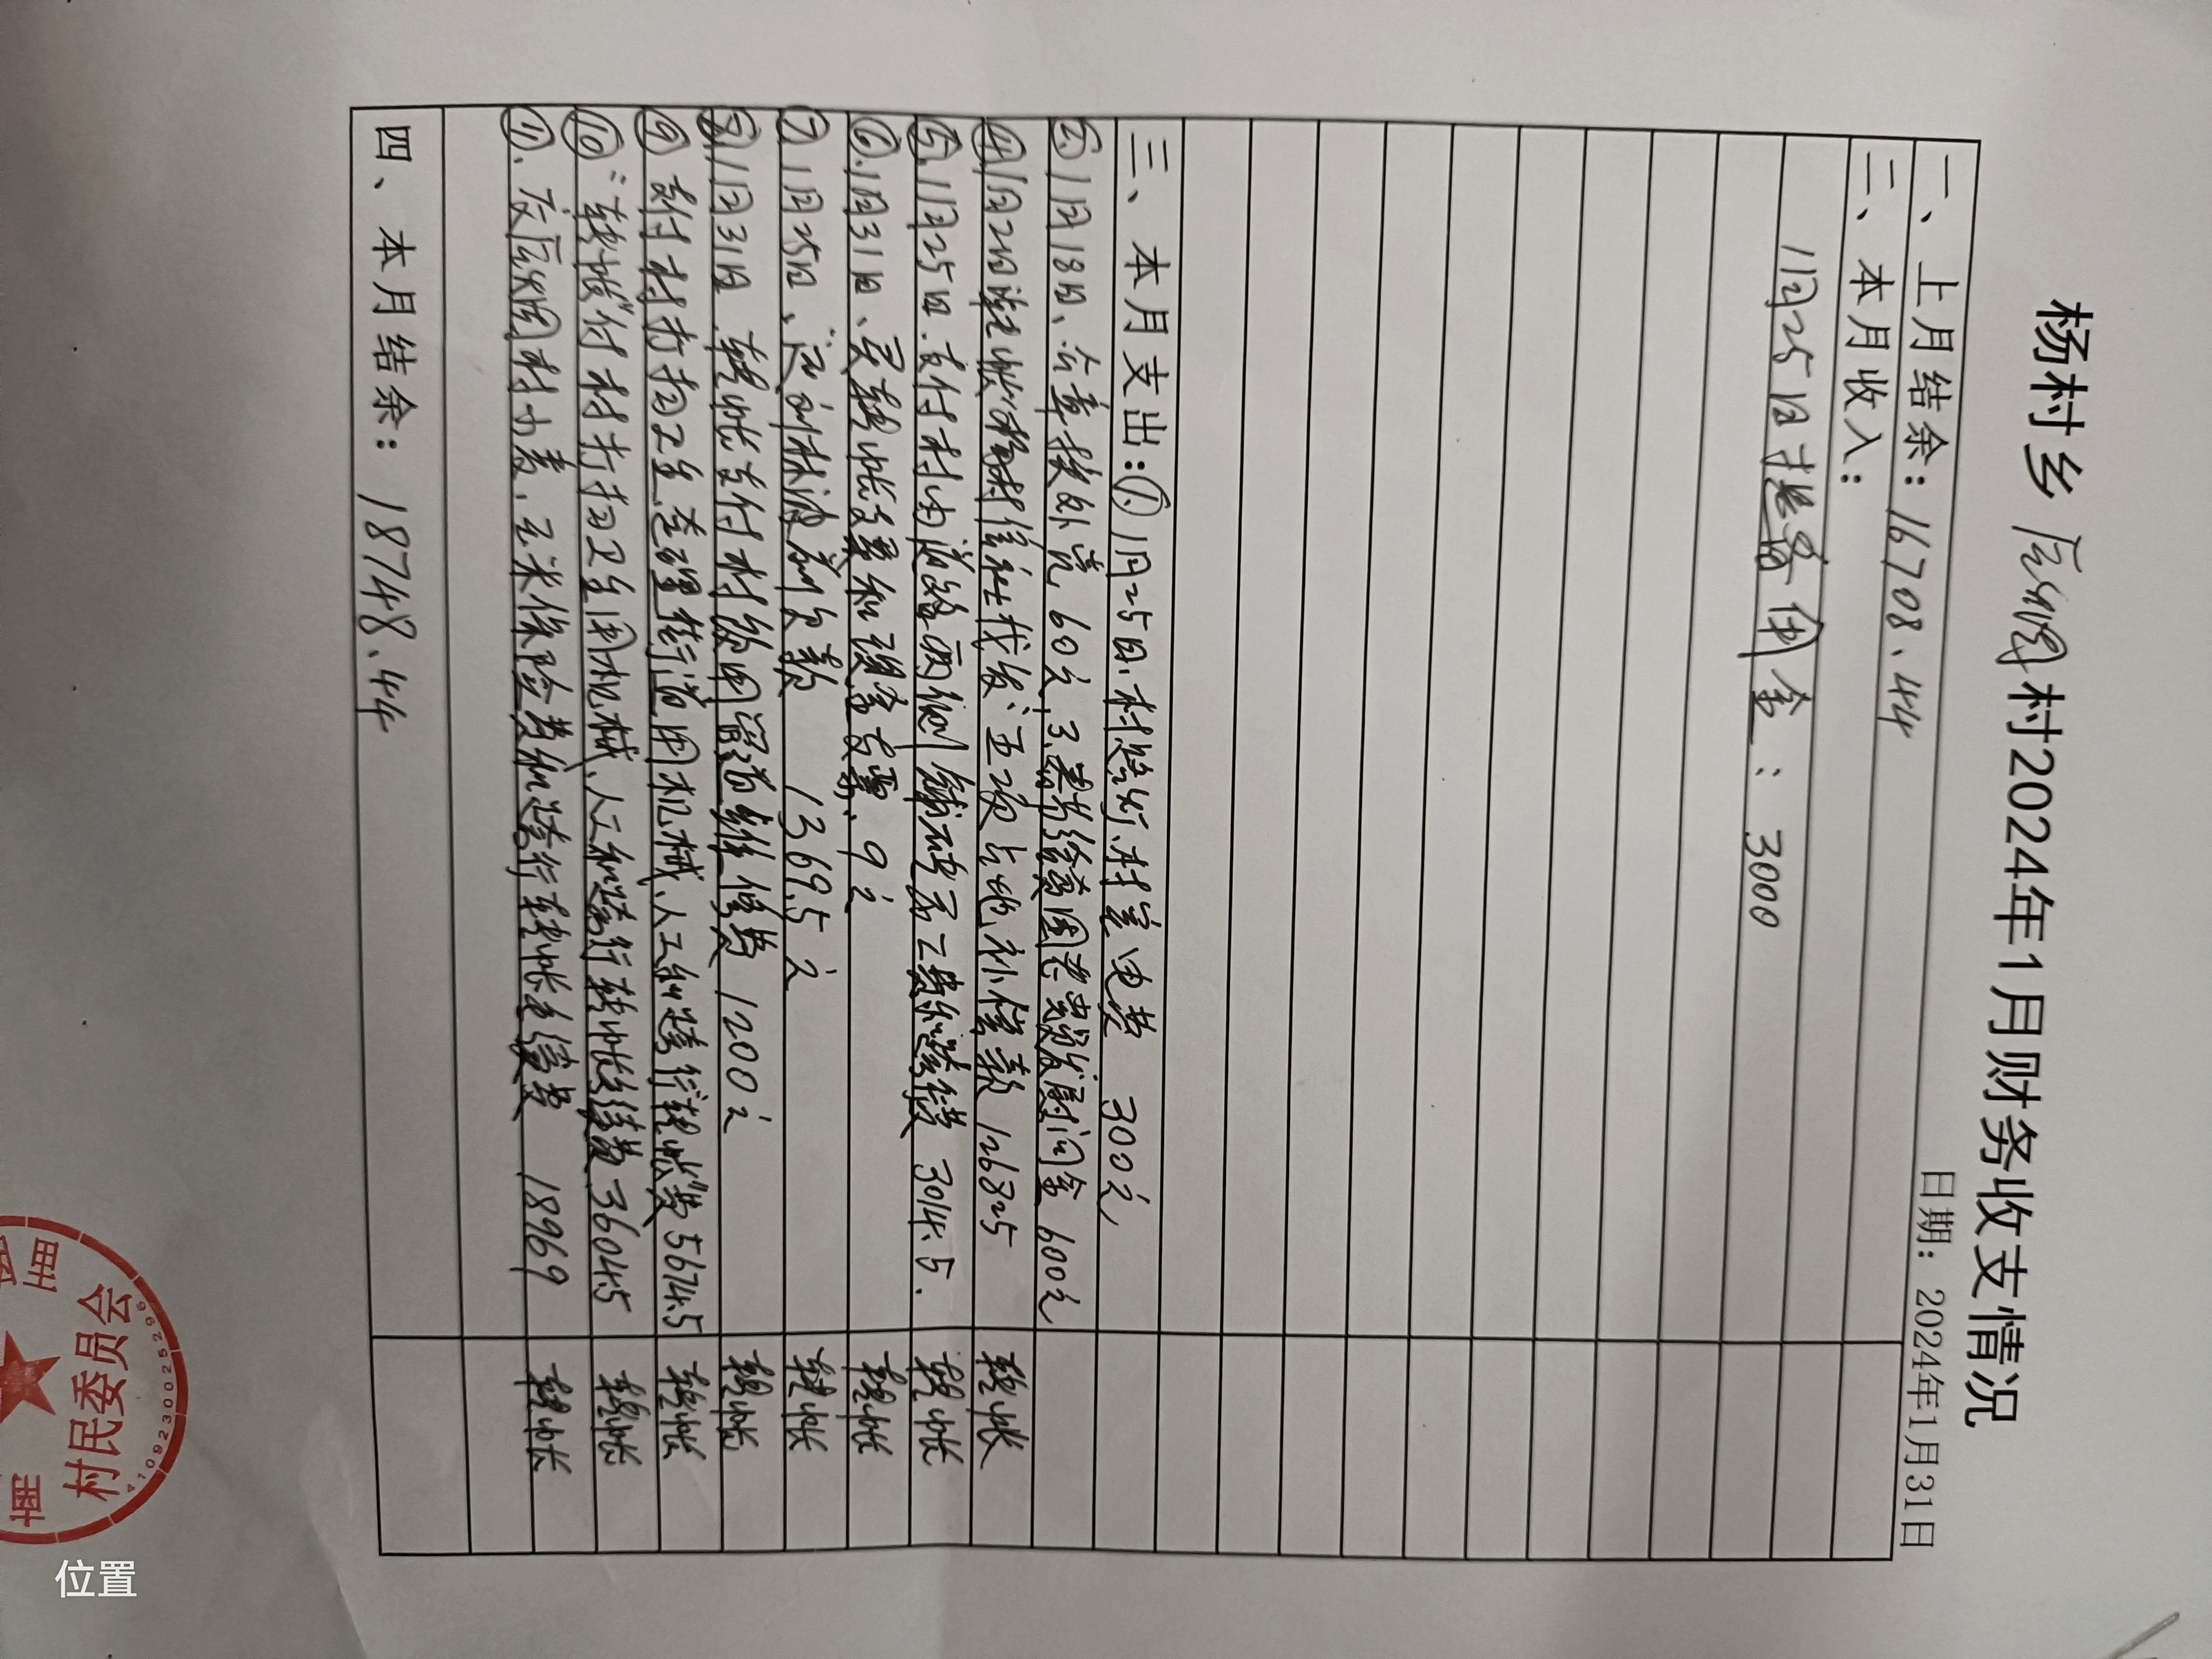 杨村乡后烟村2024年1月财务收支情况
日期：2024年1月31日
一、上月结余：16708.44
二、本月收入：
1月25日提备用金：3000
三、本月支出：①、1月25日、村路灯、村室电费 300元
②、1月18日、公章换外壳 60元，3、春节给贫困老党员发慰问金 600元
④、1月2日转帐"杨村信社代发"五项占地补偿款 126825 转帐
⑤、1月25日、支付村内道路两侧铺砖工费和跨行费 3014.5. 转帐
⑥、1月31日、买转帐支票和现金支票、9元 转帐
⑦、1月25日、还刘林波前欠款 1369.5元 转帐
⑧、1月31日、转帐支付村饮用管道维修费 1200元 转帐
⑨支付村打扫卫生、查理街道用机械、人工和跨行"转帐"费 5674.5 转帐
⑩"转帐"付村打扫卫生用机械、人工和跨行转帐手续费 3604.5 转帐
⑪、交后烟村小麦、玉米保险费和跨行转帐手续费 18969 转帐
四、本月结余：18748.44
村民委员会
4109230025296
位置